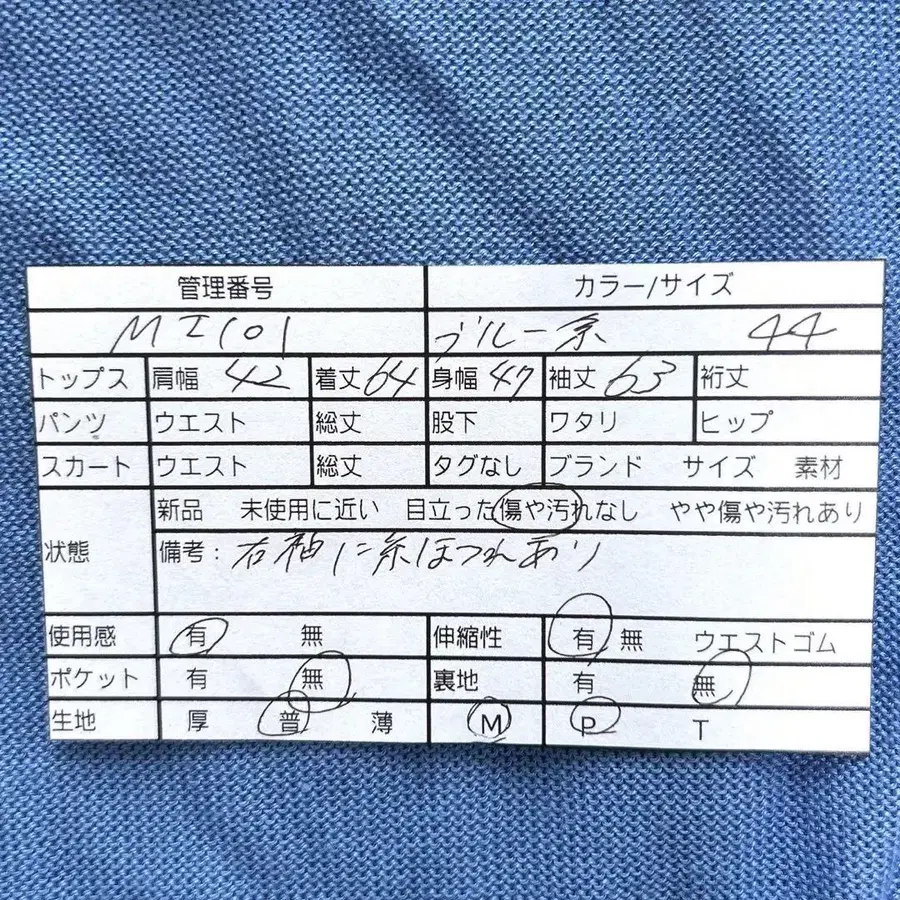 管理番号 カラー/サイズ
MI101 ブルー系 44
トップス 肩幅 42 着丈 64 身幅 47 袖丈 63 裄丈
パンツ ウエスト 総丈 股下 ワタリ ヒップ
スカート ウエスト 総丈 タグなし ブランド サイズ 素材
状態 新品 未使用に近い 目立った傷や汚れなし やや傷や汚れあり
備考：右袖に糸ほつれあり
使用感 有 無 伸縮性 有 無 ウエストゴム
ポケット 有 無 裏地 有 無
生地 厚 普 薄 M P T